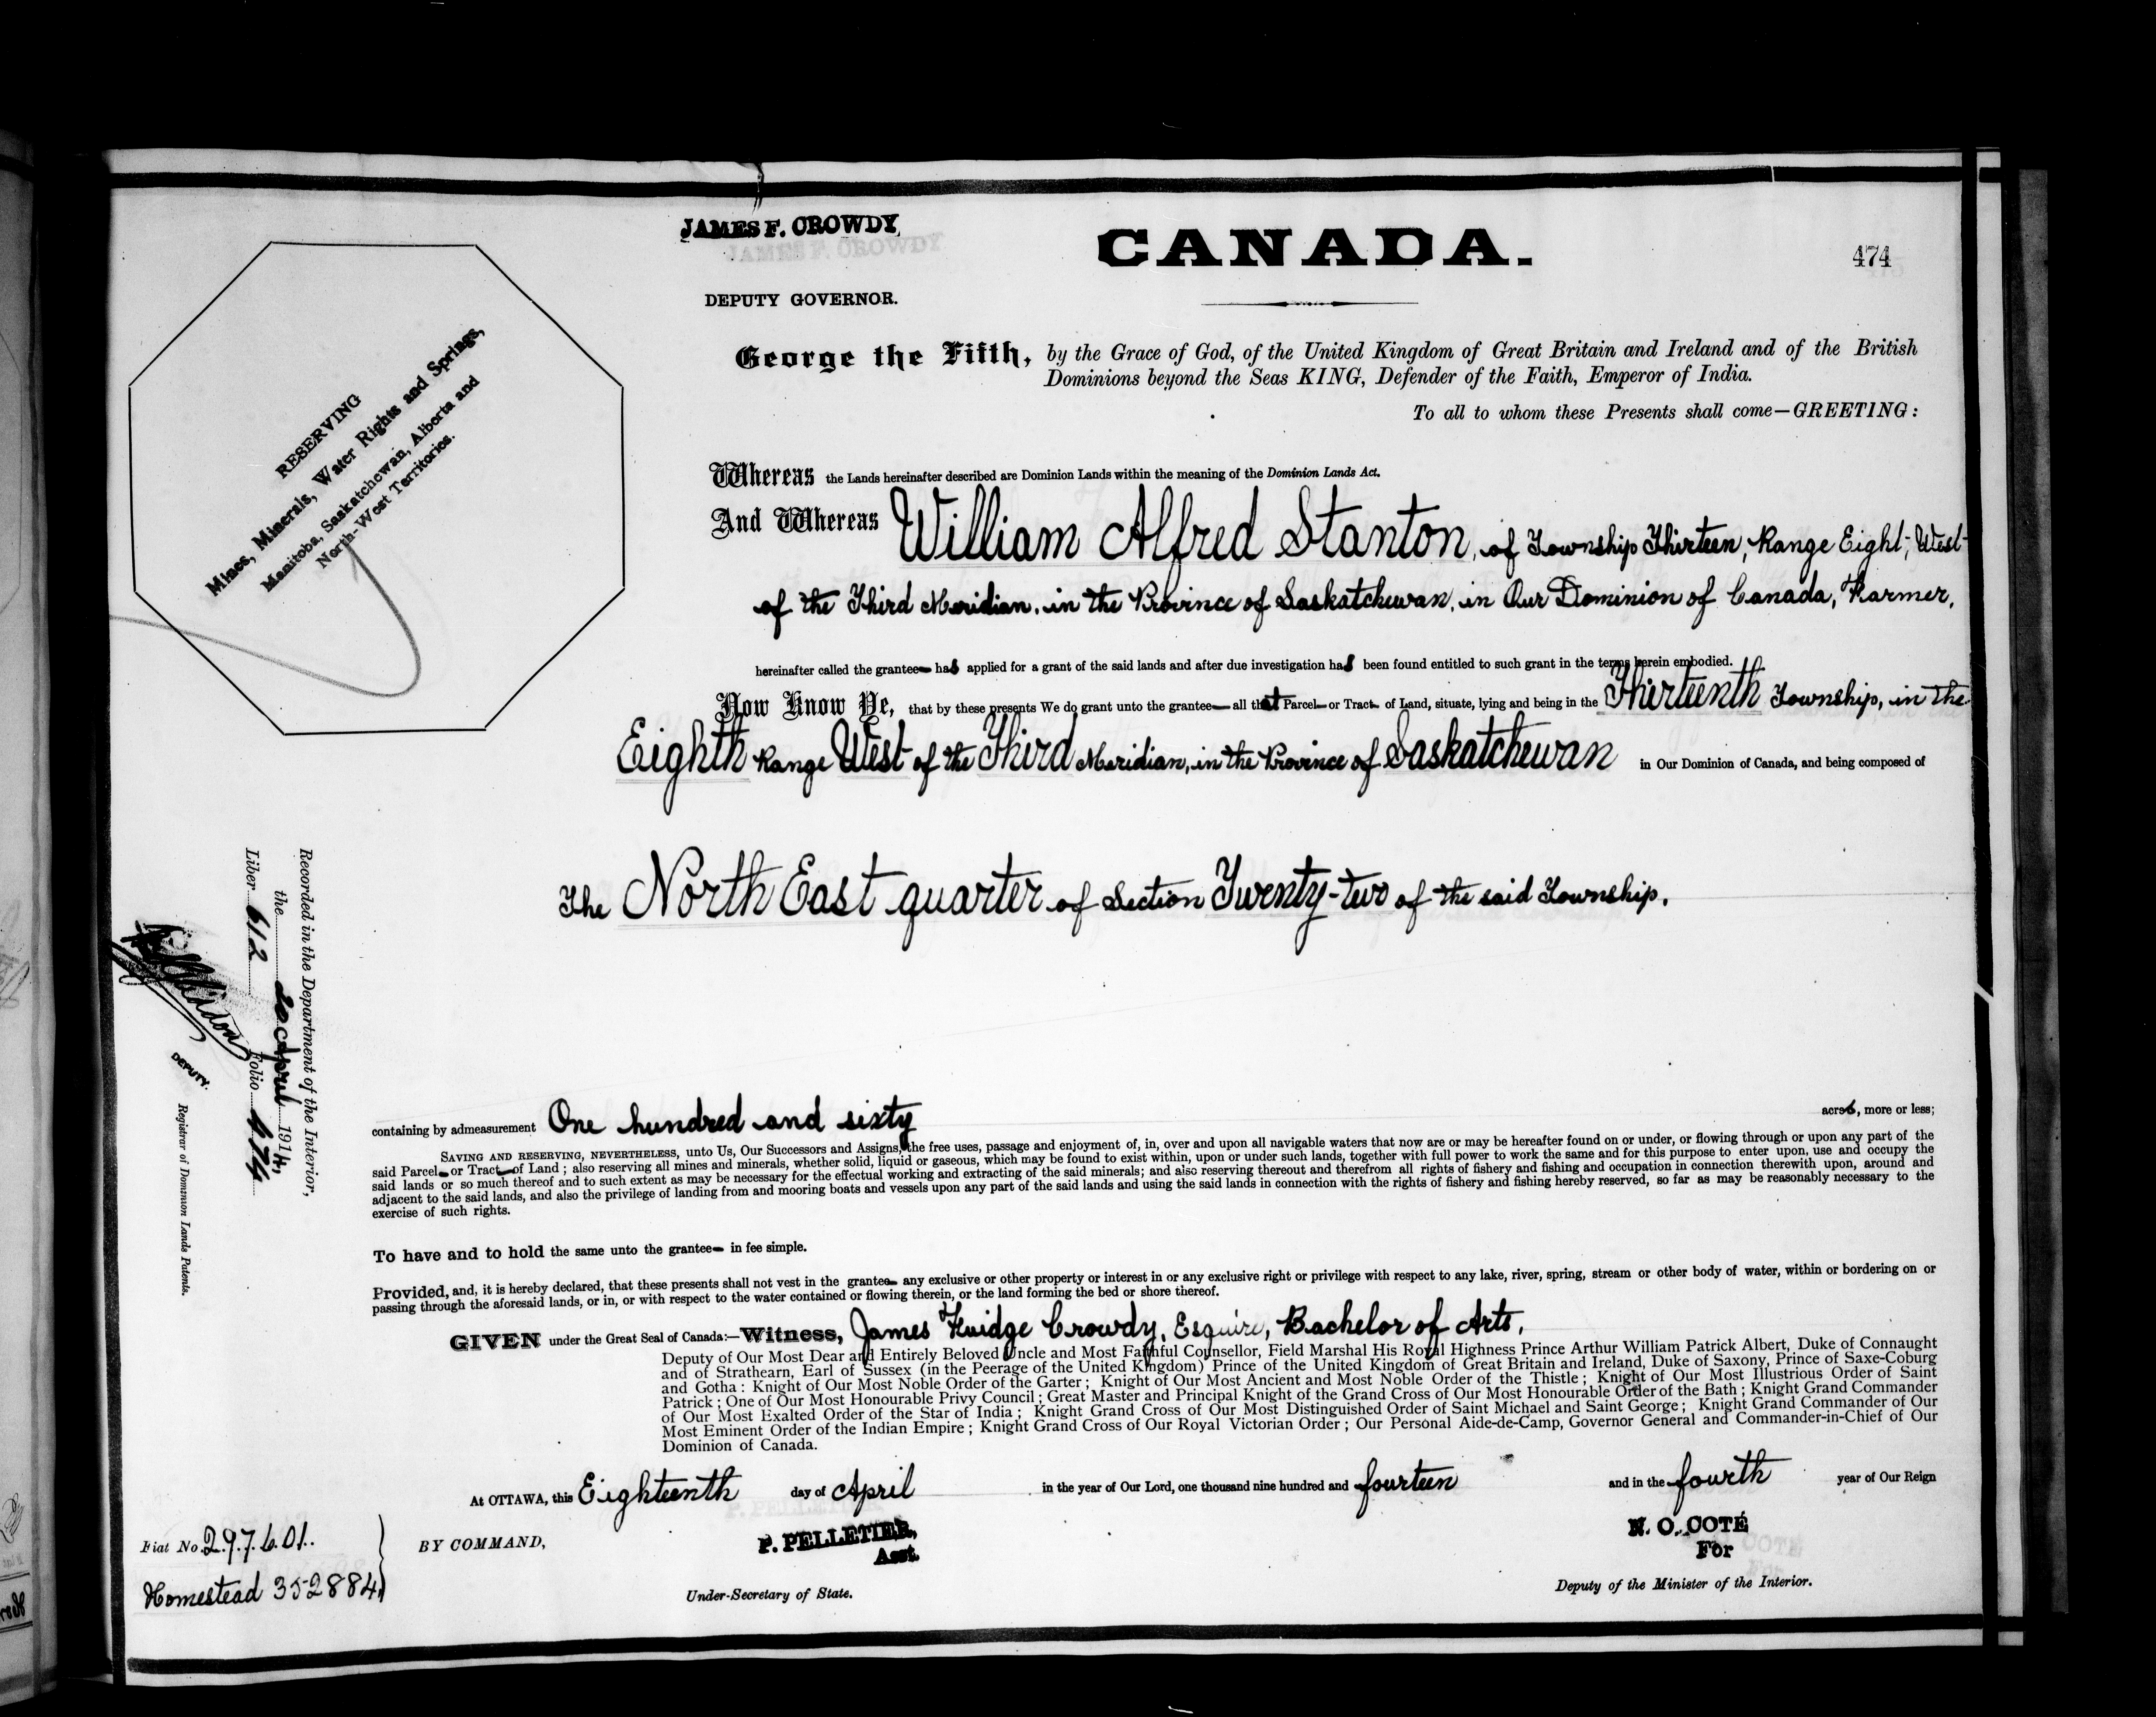 JAMES F. CROWDY
DEPUTY GOVERNOR.
CANADA.
474
RESERVING
Mines, Minerals, Water Rights and Springs,
Manitoba, Saskatchewan, Alberta and
North-West Territories.
George the Fifth, by the Grace of God, of the United Kingdom of Great Britain and Ireland and of the British
Dominions beyond the Seas KING, Defender of the Faith, Emperor of India.
To all to whom these Presents shall come—GREETING:
Whereas the Lands hereinafter described are Dominion Lands within the meaning of the Dominion Lands Act.
And Whereas William Alfred Stanton, of Township Thirteen, Range Eight, West
of the Third Meridian, in the Province of Saskatchewan, in Our Dominion of Canada, Farmer,
hereinafter called the grantee— has applied for a grant of the said lands and after due investigation has been found entitled to such grant in the terms herein embodied.
Now Know Ye, that by these presents We do grant unto the grantee— all that Parcel— or Tract— of Land, situate, lying and being in the Thirteenth Township, in the
Eighth Range West of the Third Meridian, in the Province of Saskatchewan in Our Dominion of Canada, and being composed of
The North East quarter of Section Twenty-two of the said Township.
Recorded in the Department of the Interior,
the 20 April 1914,
Liber 612 Folio 474
DEPUTY.
Registrar of Dominion Lands Patents.
containing by admeasurement One hundred and sixty acres, more or less;
SAVING AND RESERVING, NEVERTHELESS, unto Us, Our Successors and Assigns, the free uses, passage and enjoyment of, in, over and upon all navigable waters that now are or may be hereafter found on or under, or flowing through or upon any part of the
said Parcel— or Tract— of Land; also reserving all mines and minerals, whether solid, liquid or gaseous, which may be found to exist within, upon or under such lands, together with full power to work the same and for this purpose to enter upon, use and occupy the
said lands or so much thereof and to such extent as may be necessary for the effectual working and extracting of the said minerals; and also reserving thereout and therefrom all rights of fishery and fishing and occupation in connection therewith upon, around and
adjacent to the said lands, and also the privilege of landing from and mooring boats and vessels upon any part of the said lands and using the said lands in connection with the rights of fishery and fishing hereby reserved, so far as may be reasonably necessary to the
exercise of such rights.
To have and to hold the same unto the grantee— in fee simple.
Provided, and, it is hereby declared, that these presents shall not vest in the grantee— any exclusive or other property or interest in or any exclusive right or privilege with respect to any lake, river, spring, stream or other body of water, within or bordering on or
passing through the aforesaid lands, or in, or with respect to the water contained or flowing therein, or the land forming the bed or shore thereof.
GIVEN under the Great Seal of Canada:—Witness, James Fuidge Crowdy, Esquire, Bachelor of Arts,
Deputy of Our Most Dear and Entirely Beloved Uncle and Most Faithful Counsellor, Field Marshal His Royal Highness Prince Arthur William Patrick Albert, Duke of Connaught
and of Strathearn, Earl of Sussex (in the Peerage of the United Kingdom) Prince of the United Kingdom of Great Britain and Ireland, Duke of Saxony, Prince of Saxe-Coburg
and Gotha: Knight of Our Most Noble Order of the Garter; Knight of Our Most Ancient and Most Noble Order of the Thistle; Knight of Our Most Illustrious Order of Saint
Patrick; One of Our Most Honourable Privy Council; Great Master and Principal Knight of the Grand Cross of Our Most Honourable Order of the Bath; Knight Grand Commander
of Our Most Exalted Order of the Star of India; Knight Grand Cross of Our Most Distinguished Order of Saint Michael and Saint George; Knight Grand Commander of Our
Most Eminent Order of the Indian Empire; Knight Grand Cross of Our Royal Victorian Order; Our Personal Aide-de-Camp, Governor General and Commander-in-Chief of Our
Dominion of Canada.
At OTTAWA, this Eighteenth day of April in the year of Our Lord, one thousand nine hundred and fourteen and in the fourth year of Our Reign
Fiat No. 297601.
Homestead 352884
BY COMMAND,
P. PELLETIER,
Asst.
Under-Secretary of State.
N. O. COTÉ
For
Deputy of the Minister of the Interior.